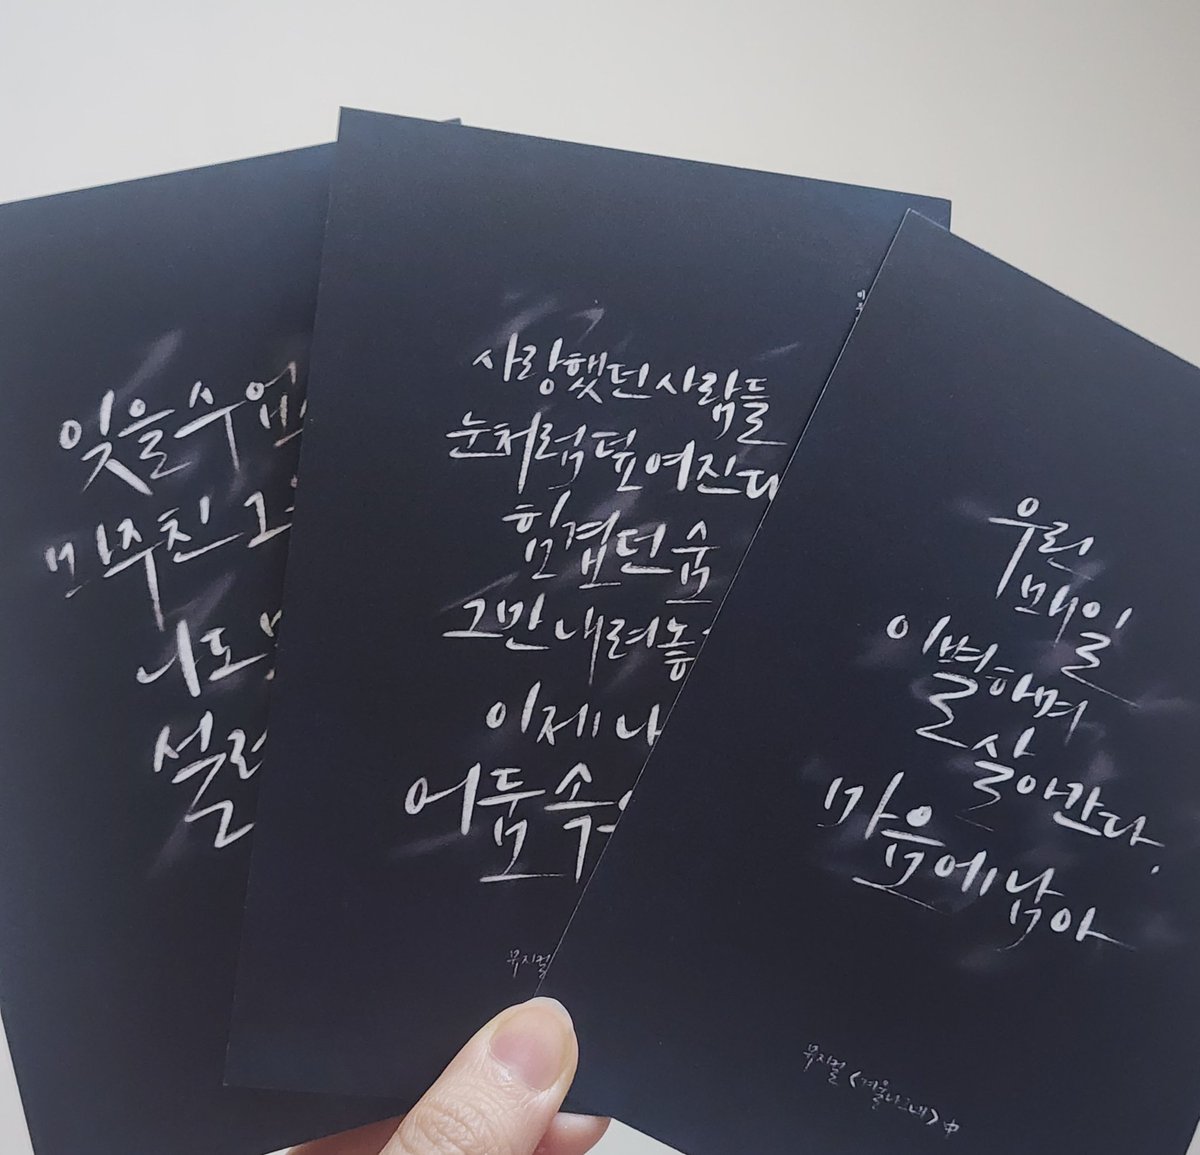 잊을 수 없
마주친 그
나도
설
사랑했던 사람들
눈처럼 덮여진다
힘겹던 숨
그만 내려놓
이제 나
어둠 속
뮤지컬
우린
매일
이별하며
살아간다.
마음에 남아
뮤지컬 <겨울나그네> 中